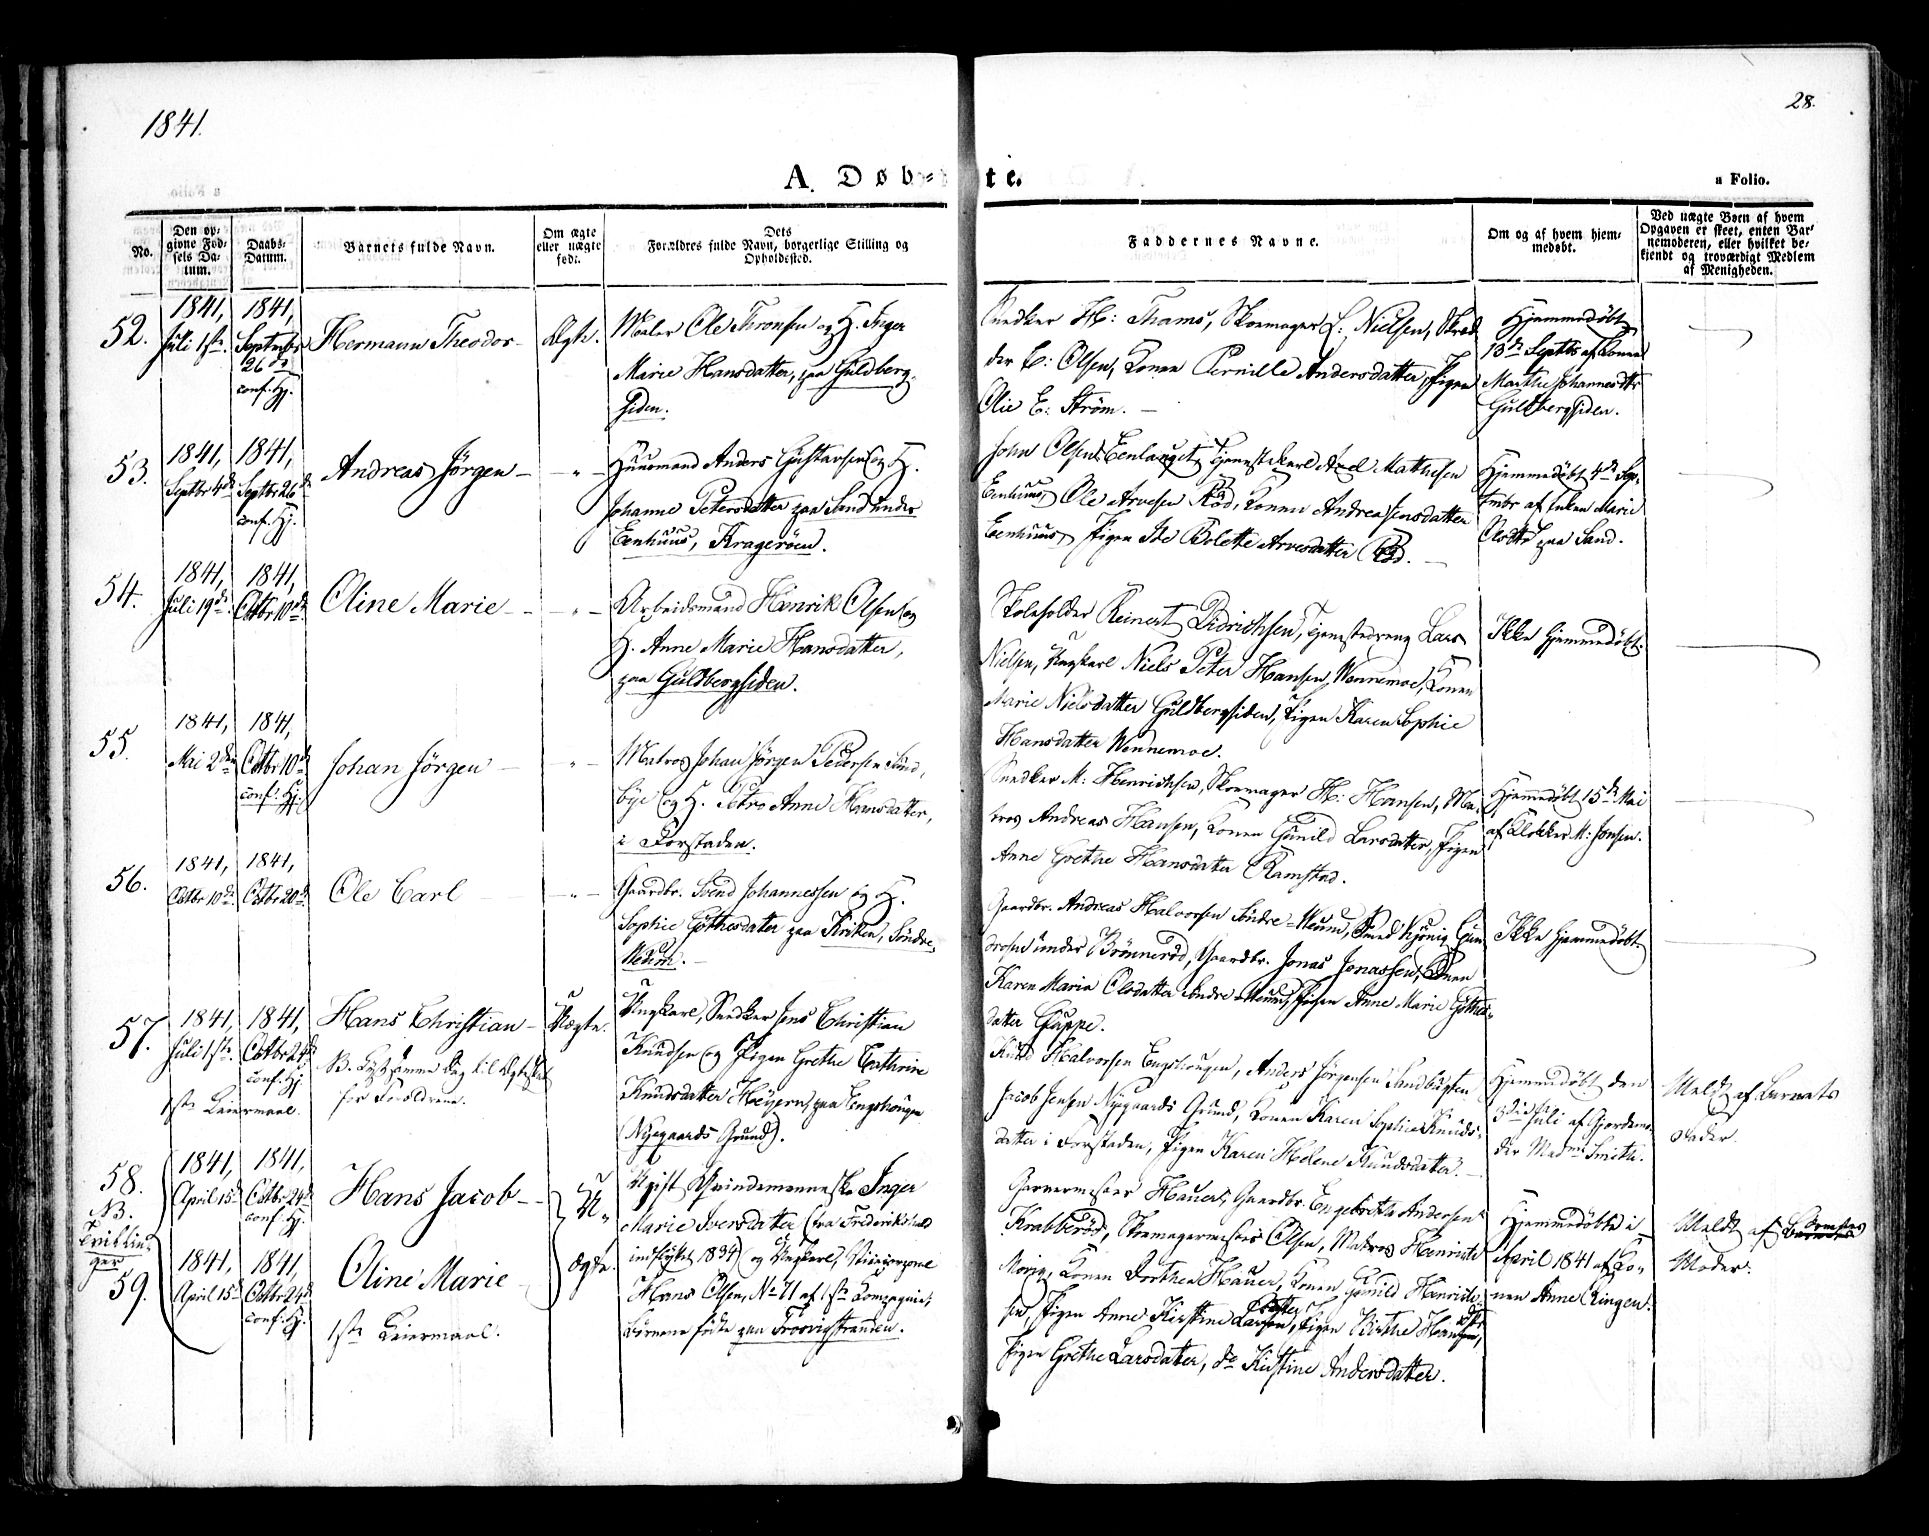 1841.
28.
A. Døb-
te.
a Folio.
No.
Den op-
givne Fød-
sels Da-
tum.
Daabs-
Datum.
Barnets fulde Navn.
Om ægte
eller uægte
født.
Dets
Forældres fulde Navn, borgerlige Stilling og
Opholdssted.
Faddernes Navne.
Om og af hvem hjem-
medøbt.
Ved uægte Børn af hvem
Opgaven er skeet, enten Bar-
nemoderen, eller hvilket be-
kjendt og troværdigt Medlem
af Menigheden.
52.
1841,
Juli 1ste.
1841,
Septembr
26de
conf. Hj.
Hermann Theodor
Ægte.
Maler Ole Thronsen og H. Inger
Marie Hansdatter, paa Guldberg-
siden.
Snedker H: Thams, Skomager L: Nielsen, Skræd
der E: Olsen, Konen Pernille Andersdatter, Pigen
Olie E: Strøm.
Hjemmedøbt
13de Septbr af Konen
Marthe Johannesdtr
Guldbergsiden.
53.
1841,
Septbr 4de
1841,
Septbr 26de
conf. Hj.
Andreas Jörgen
"
Huusmand Anders Gustavsen og H.
Johanne Petersdatter paa Sand under
Eenhuus, Kragerøen.
John Olsen Eenlauget, Tjenestekarl Axel Mathisen
Eenhuus, Ole Arvesen Rød, Konen Andrea Jensdatter
Eenhuus, Pigen Ide Bolette Arvesdatter Rød.
Hjemmedøbt 4de Sep-
tembr af Enken Marie
Olsdtr paa Sand.
54.
1841,
Juli 19de.
1841,
Octbr 10de.
Oline Marie
"
Arbeidsmand Henrik Olsen og
H. Anne Marie Hansdatter,
paa Guldbergsiden.
Skoleholder Reinert Didrichsen, Tjenestedreng Lars
Nielsen, Ungkarl Niels Peter Hansen Wennemoe, Konen
Marie Nielsdatter Guldbergsiden, Pigen Karen Sophie
Hansdatter Wennemoe.
Ikke hjemmedøbt.
55.
1841,
Mai 2den
1841,
Octbr 10de
conf. Hj.
Johan Jörgen
"
Matros Johan Jörgen Pedersen Sund-
bye og H. Petra Anne Hansdatter,
i Forstaden.
Snedker M: Henrichsen, Skomager H: Hansen, Ma-
tros Andreas Hansen, Konen Gunild Larsdatter, Pigen
Anne Grethe Hansdatter Ramstad.
Hjemmedøbt 15de Mai
af Klokker M: Jensen.
56.
1841,
Octbr 10de.
1841,
Octbr 20de.
Ole Carl
"
Gaardbr. Svend Johannessen og H.
Sophie Göthesdatter paa Kirken, Søndre
Meum.
Gaardbr. Andreas Halvorsen Søndre-Meum, Smed Kjönig Gun
drosen under Brønnerød, Gaardbr. Jonas Jonassen, Konen
Karen Maria Olsdatter Søndre-Meum, Pigen Anne Marie Göthes-
datter Guppe.
Ikke hjemmedøbt
57.
1841,
Juli 1ste.
1841,
Octbr 24de
conf. Hj.
Hans Christian
NB. Lyst samme Dag til Ægteskab
for Forældrene.
1ste Leiermaal.
Uægte.
Ungkarl, Snedker Jens Christian
Knudsen og Pigen Grethe Cathrine
Knudsdatter Heyern, paa Engehougen
(Nygaards Grund).
Knud Halvorsen Engehougen, Anders Jörgensen Sandbugten
Jacob Jensen Nygaards Grund, Konen Karen Sophie Knuds-
datter i Forstaden, Pigen Karen Helene Knudsdatter.
Hjemmedøbt den
3die Juli af Gjordemo-
der Madme Smith.
Meldt af Barnets
Fader.
58.
NB.
Tvillin-
ger
59.
1841,
April 15de
1841,
Octbr 24de
conf. Hj.
Hans Jacob
1841,
April 15de
1841,
Octbr 24de
conf. Hj.
Oline Marie
1ste Leiermaal.
U-
ægte.
Ugift Qvindemenneske Inger
Marie Iversdatter (fra Frederikshald
indflyttet 1834) og Ungkarl,
Hans Olsen, No 71 af 1ste Kompagnie;
Børnene fødte paa Troovigstranden.
Garvermester Hauer, Gaardbr. Engebreth Andersen
Krabberød, Skomagermester Olsen, Matros Henrich
Moritz, Konen Dorthea Hauer, Konen Gunild Henrich-
sen, Pigen Anne Kirstine Larsdatter, Pigen Birthe Hansdtr,
Pigen Grethe Larsdatter, do Kirstine Andersdatter.
Hjemmedøbte i
April 1841 af Ko-
nen Anne Ringen.
Meldt af Børnenes
Moder.